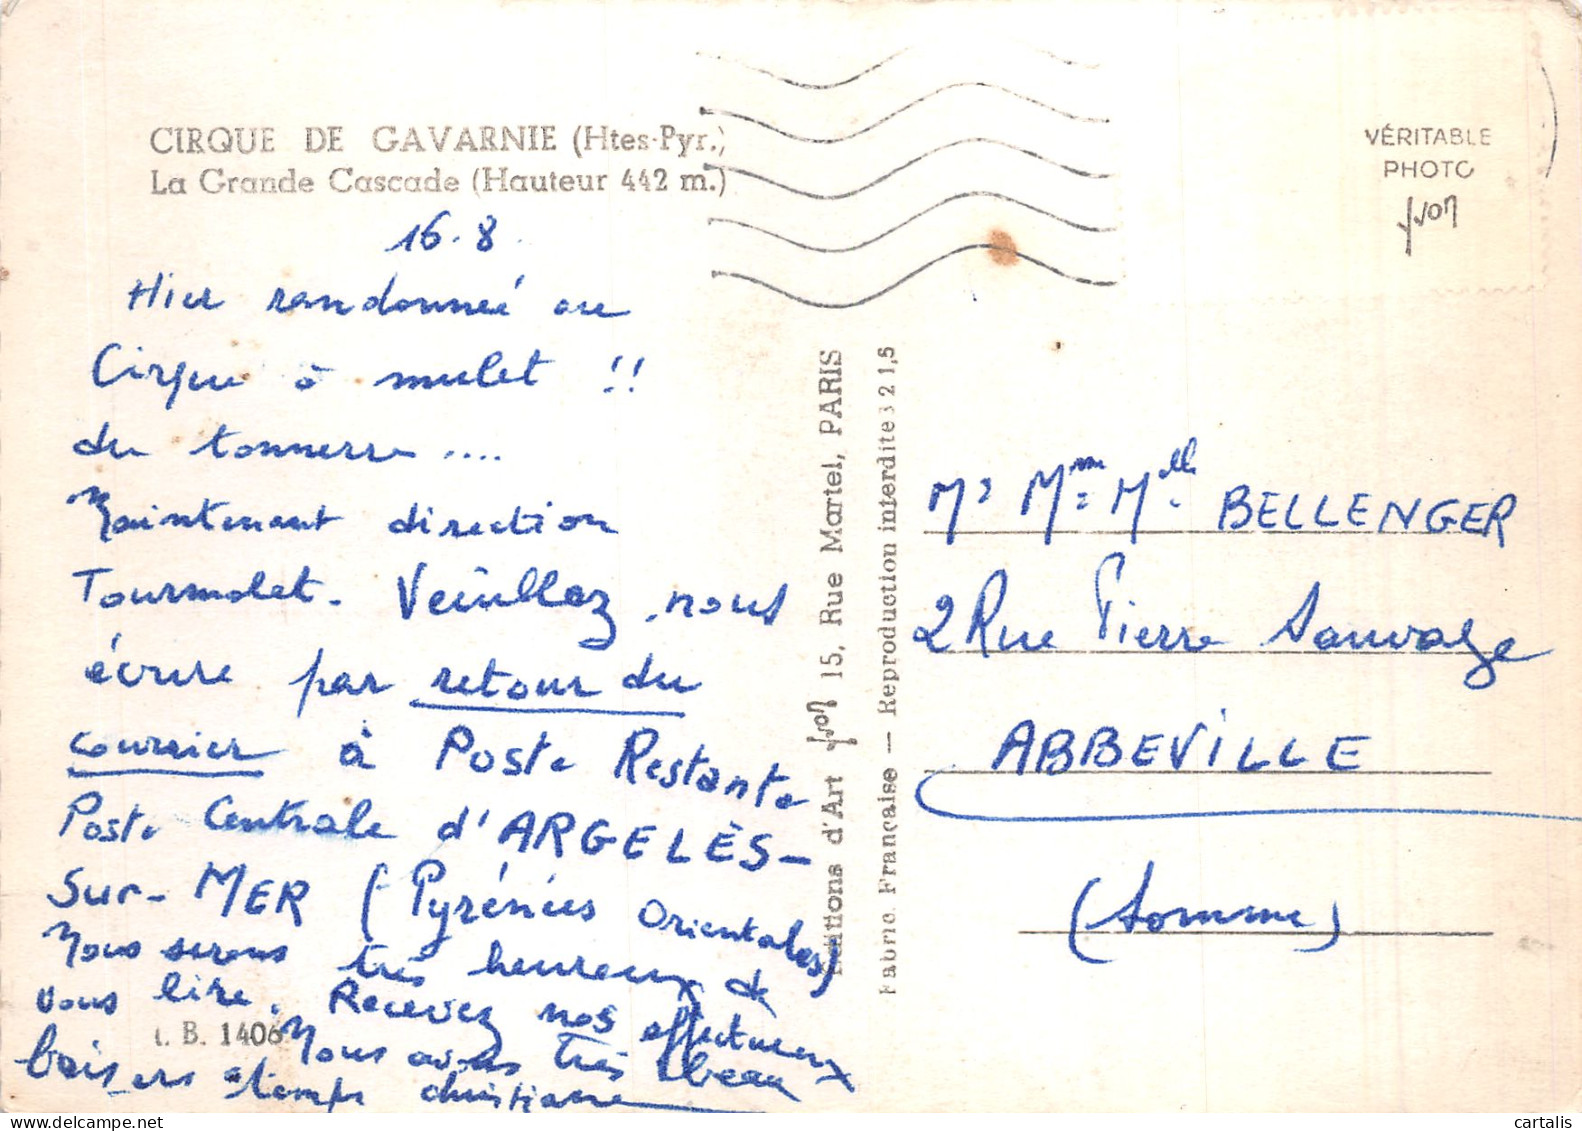 CIRQUE DE GAVARNIE (Htes-Pyr.)
La Grande Cascade (Hauteur 442 m.)
16.8.
Hier randonneé au
Cirque à mulet !!
du tonnerre ....
Maintenant direction
Tourmalet. Veuillez nous
écrire par retour du
courrier à Poste Restante
Poste Centrale d'ARGELÈS-
Sur-MER (Pyrénées Orientales)
Nous serons très heureux de
vous lire. Recevez nos affectueux
baisers Nous avons très beau
temps christiane
B. 1406
Editions d'Art yvon 15, Rue Martel, PARIS
Fabric. Française — Reproduction interdite 3 2 1,5
VÉRITABLE
PHOTO
yvon
Mr Mme Mlle BELLENGER
2 Rue Pierre Sauvage
ABBEVILLE
(Somme)
cartalis